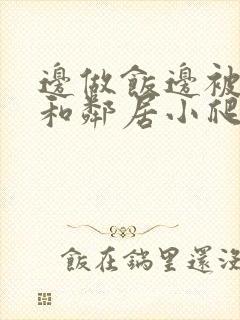 邊做飯邊被
和鄰居小爬
飯在鍋里還沒